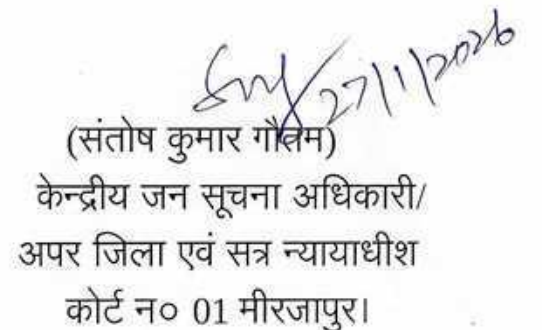 27/1/2026
(संतोष कुमार गौतम)
केन्द्रीय जन सूचना अधिकारी/
अपर जिला एवं सत्र न्यायाधीश
कोर्ट न० 01 मीरजापुर।